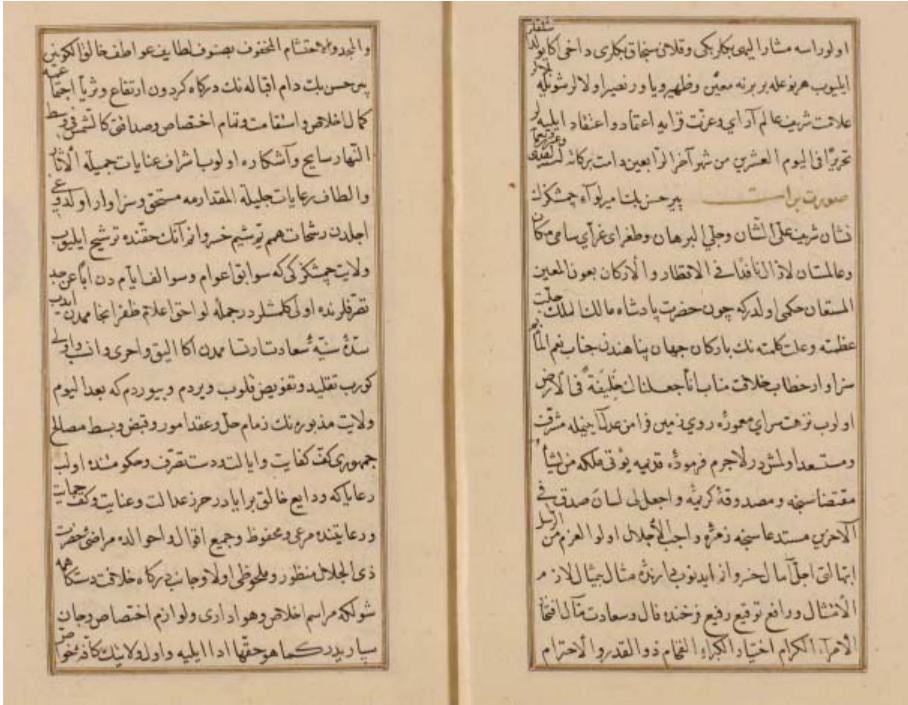 اولورلرسه مشار اليهى بكلربكى وقلان سنجاق بكلرى داخى
ايليوب هر نوعله بربرنه معين وظهير وياور ونصير اولالر شويله
علامت شريف عالم آراى وعزت قزايه اعتماد واعتقاد ايليه لر
تحريرًا فى اليوم العشرين من شهر آخر الرابعين دامت بركاته
صورت برات پير حسن بك مير لوآء چمشكزك
نشان شريف على الشان وجلى البرهان وطغراى غرآى سامى مكان
وعالمستان لا زال نافذًا فى الاقطار والاركان بعون المعين
المستعان حكمى اولدركه چون حضرت پادشاه مالك الملك جلت
عظمته وعلت كلمته نك باركان جهان پناهندن جناب نعم المآب
سزاوار خطاب خلافت مناب انا جعلناك خليفة فى الارض
اولوب نزهت سراى معموره روى زمين فرامن عدالتمزله مشرف
ومستعد اولشدر لاجرم فرموده قدسيه يؤتى ملكه من يشآء
مقتضاسنجه ومصدوقه كريمه واجعل لى لسان صدق فى
الآخرين مستدعاسنجه ذمره واجب الاجلال اولو العزم من الرسل
اجل آمال خسروانه ايدنوب مثال بيمثال لازم
الامتثال ورافع توقيع رفيع فرخنده فال وسعادت مآل افتخار
الامرآء الكرام اختيار الكبراء الفخام ذو القدر والاحترام
والمجد والاحتشام المحفوف بصنوف لطايف عواطف خالق الكونين
پير حسن بك دام اقباله نك دركاه كردون ارتفاع وثريا اجتماعه
كمال اخلاص واستقامت وتمام اختصاص وصداقتى كالشمس فى وسط
النهار سايح وآشكاره اولوب اشراف عنايات جميلة الآثار
والطاف رعايات جليلة المقدارمه مستحق وسزاوار اولدوغى
اجلدن رشحات همم خسروانه آنك حقنده ترشيح ايليوب
ولايت چمشكزكى كه سوابق اعوام وسوالف ايامدن ابًا عن جد
تصرفلرنده اولى كلمشلردر جمله لواحق اعلام ظفر انجاممدن ايدوب
سده سنيه سعادت اكا اليق واحرى وانسب واولى
كورب تقليد وتفويض قلوب ويردم وبيوردم كه بعد اليوم
ولايت مذبوره نك زمام حل وعقد امور وقبض وبسط مصالح
جمهورى كف كفايت وايالت ودست تصرف وحكومتنده اولب
رعاياكه ودايع خالق برايادر حرز عدالت وعنايت وكنف حمايت
ورعايتنده مرعى ومحفوظ وجميع اقوال واحوالده مراضئ حضرت
ذى الجلال منظور وملحوظى اولا وجانب دركاه خلافت دستكاهمه
شولكه مراسم اخلاص وهوادارى ولوازم اختصاص وجان
سپاريدر كما هو حقها ادا ايليه واول ولايتك كافه